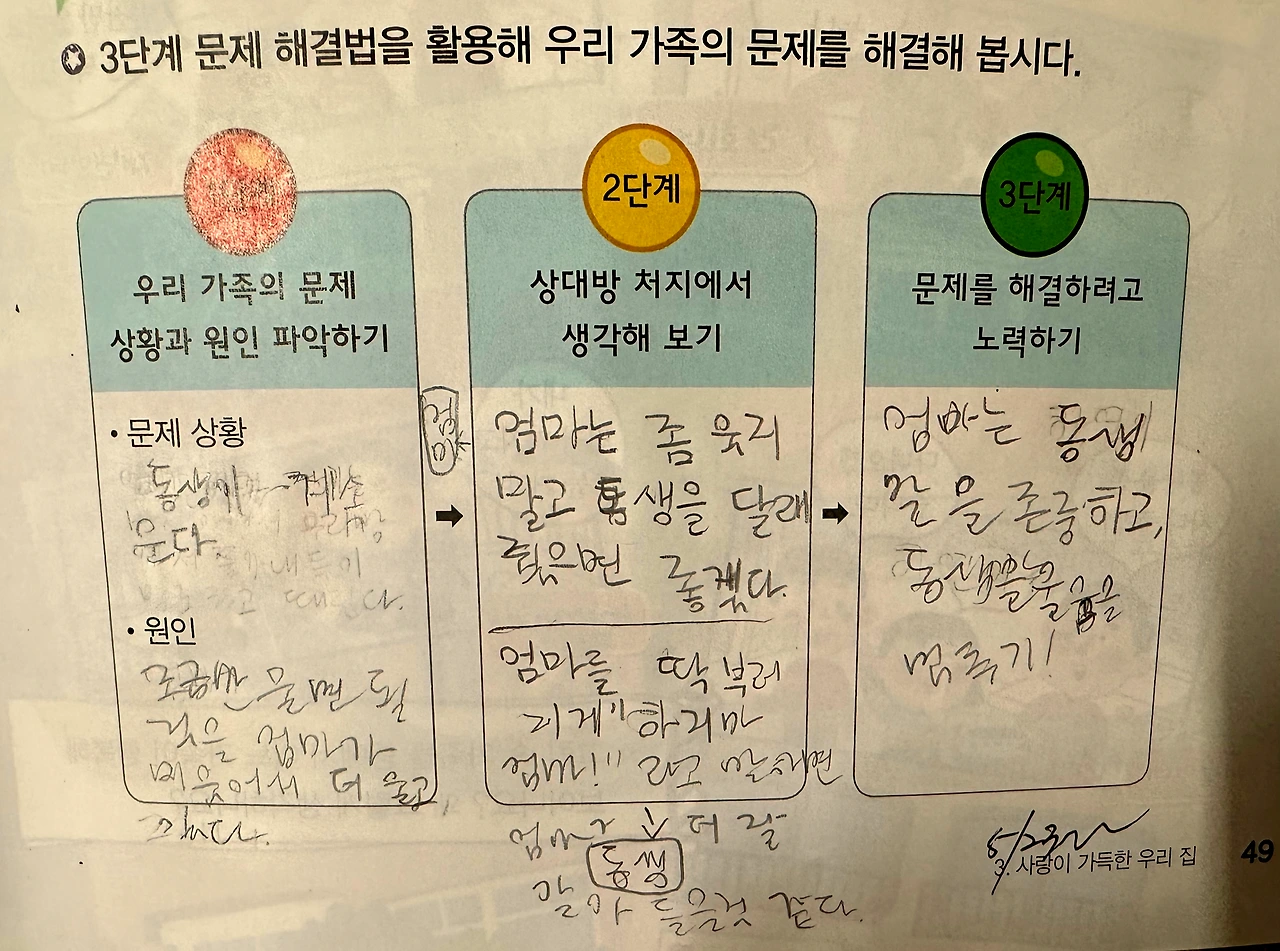 3단계 문제 해결법을 활용해 우리 가족의 문제를 해결해 봅시다.
우리 가족의 문제
상황과 원인 파악하기
• 문제 상황
동생이 계속
운다.
때린다.
• 원인
조금만 울면 될
것을 엄마가
비웃어서 더 울고,
엄마
2단계
상대방 처지에서
생각해 보기
엄마는 좀 웃지
말고 동생을 달래
줬으면 좋겠다.
엄마를 딱 부러
지게 "하지마
엄마!" 라고 말하면
엄마가 더 잘
동생
알아 들을것 같다.
3단계
문제를 해결하려고
노력하기
엄마는 동생
말을 존중하고,
동생은 울음을
멈추기!
3. 사랑이 가득한 우리 집
49